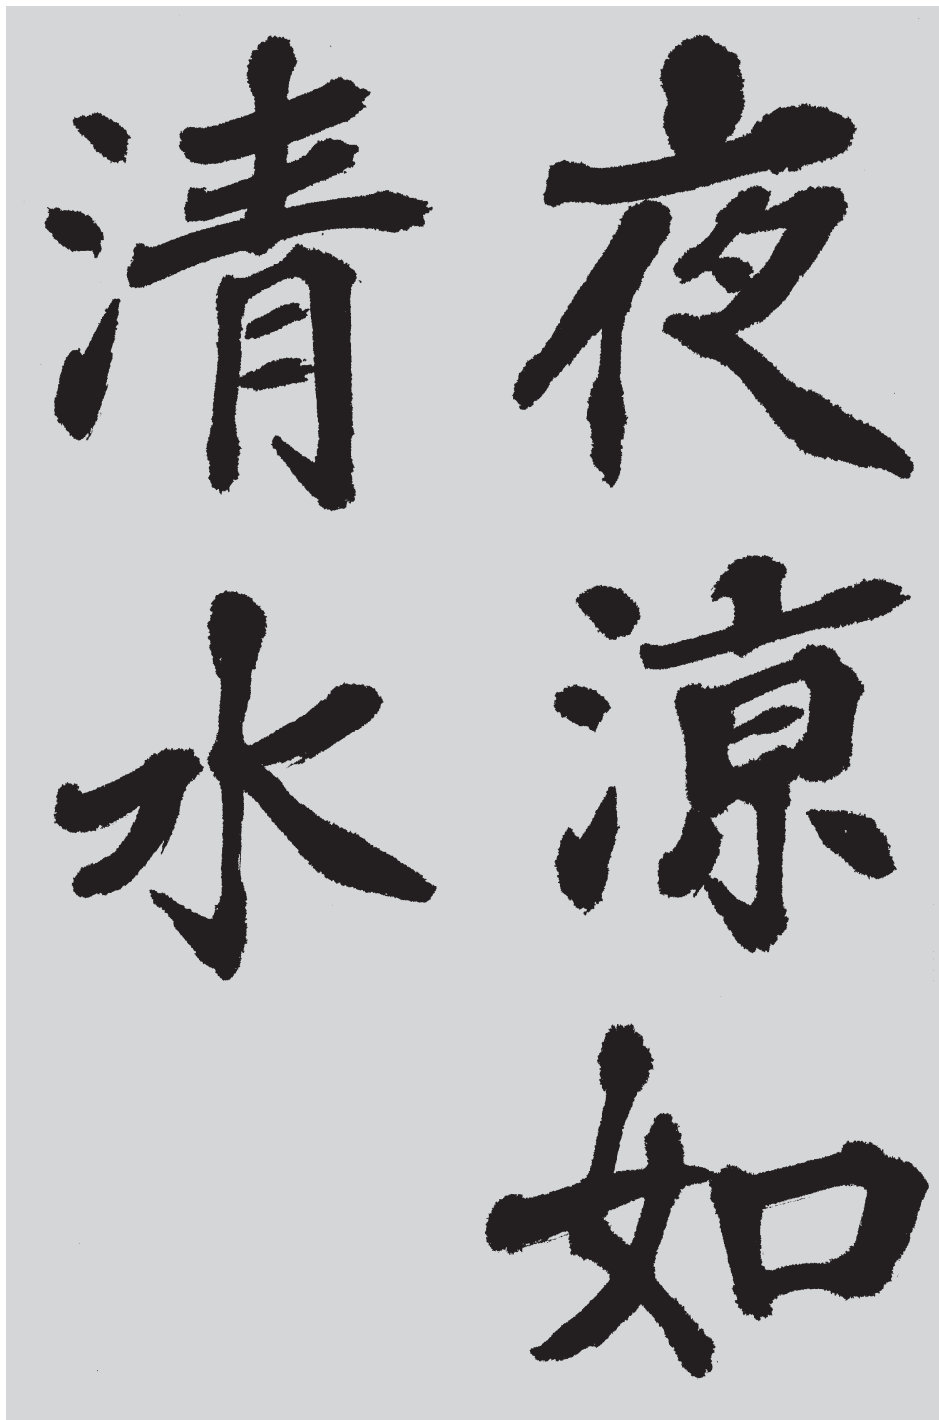 夜涼如
清水